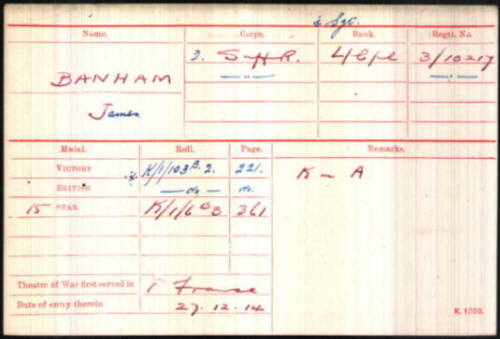 & Sgt.
Name. Corps. Rank. Regtl. No.
BANHAM 2. S.H.R. L/Cpl 3/10217
James
Medal. Roll. Page. Remarks.
VICTORY K/1/103 B. 2. 221. K – A
BRITISH — do — do.
15 STAR K/1/6 B 3 361
Theatre of War first served in 1 France
Date of entry therein 27.12.14
K. 1380.